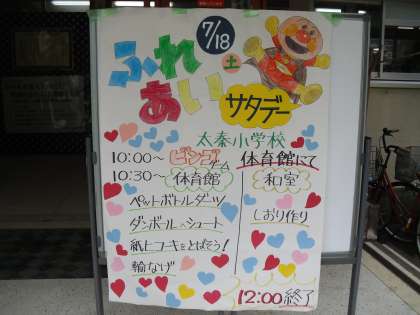 7/18
土
ふれあい
サタデー
太秦小学校
10:00〜 ビンゴゲーム 体育館にて
10:30〜 体育館 和室
ペットボトルダーツ しおり作り
ダンボールシュート
紙ヒコーキをとばそう!
輪なげ
12:00 終了